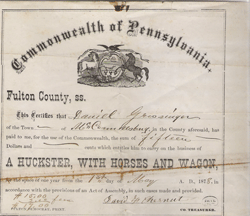 Commonwealth of Pennsylvania.
Fulton County, ss.
This Certifies that David Gensinger
of the Town of McConnellsburg in the County aforesaid, hat
paid to me, for the use of the Commonwealth, the sum of fifteen
Dollars and cents; which entitles him to carry on the business of
A HUCKSTER, WITH HORSES AND WAGON,
for the term of one year from the 1st day of May A. D. 1875, in
accordance with the provisions of an Act of Assembly, in such cases made and provided.
CO TREASURER.